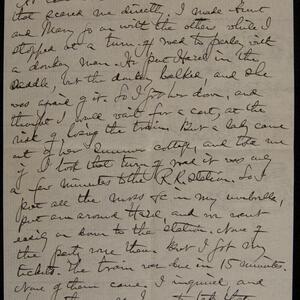 that scared me directly. I made Aunt
and Mary go on with the other while I
stopped at a turn of road to parley with
a donkey man. I put Hazel in the
saddle, but the donkey balked, and she
was afraid of it. So I got her down, and
thought I would wait for a cart, at the
risk of losing the train. But a lady came
out of her summer cottage, and told me
if I took that turn of road it was only
a few minutes to the R.R. station. So I
put all the moss &c in my umbrella,
put arm around Hazel, and we went
easily on down to the station. None of
the party were there. But I got my
tickets. The train was due in 15 minutes.
None of them came. I inquired, and